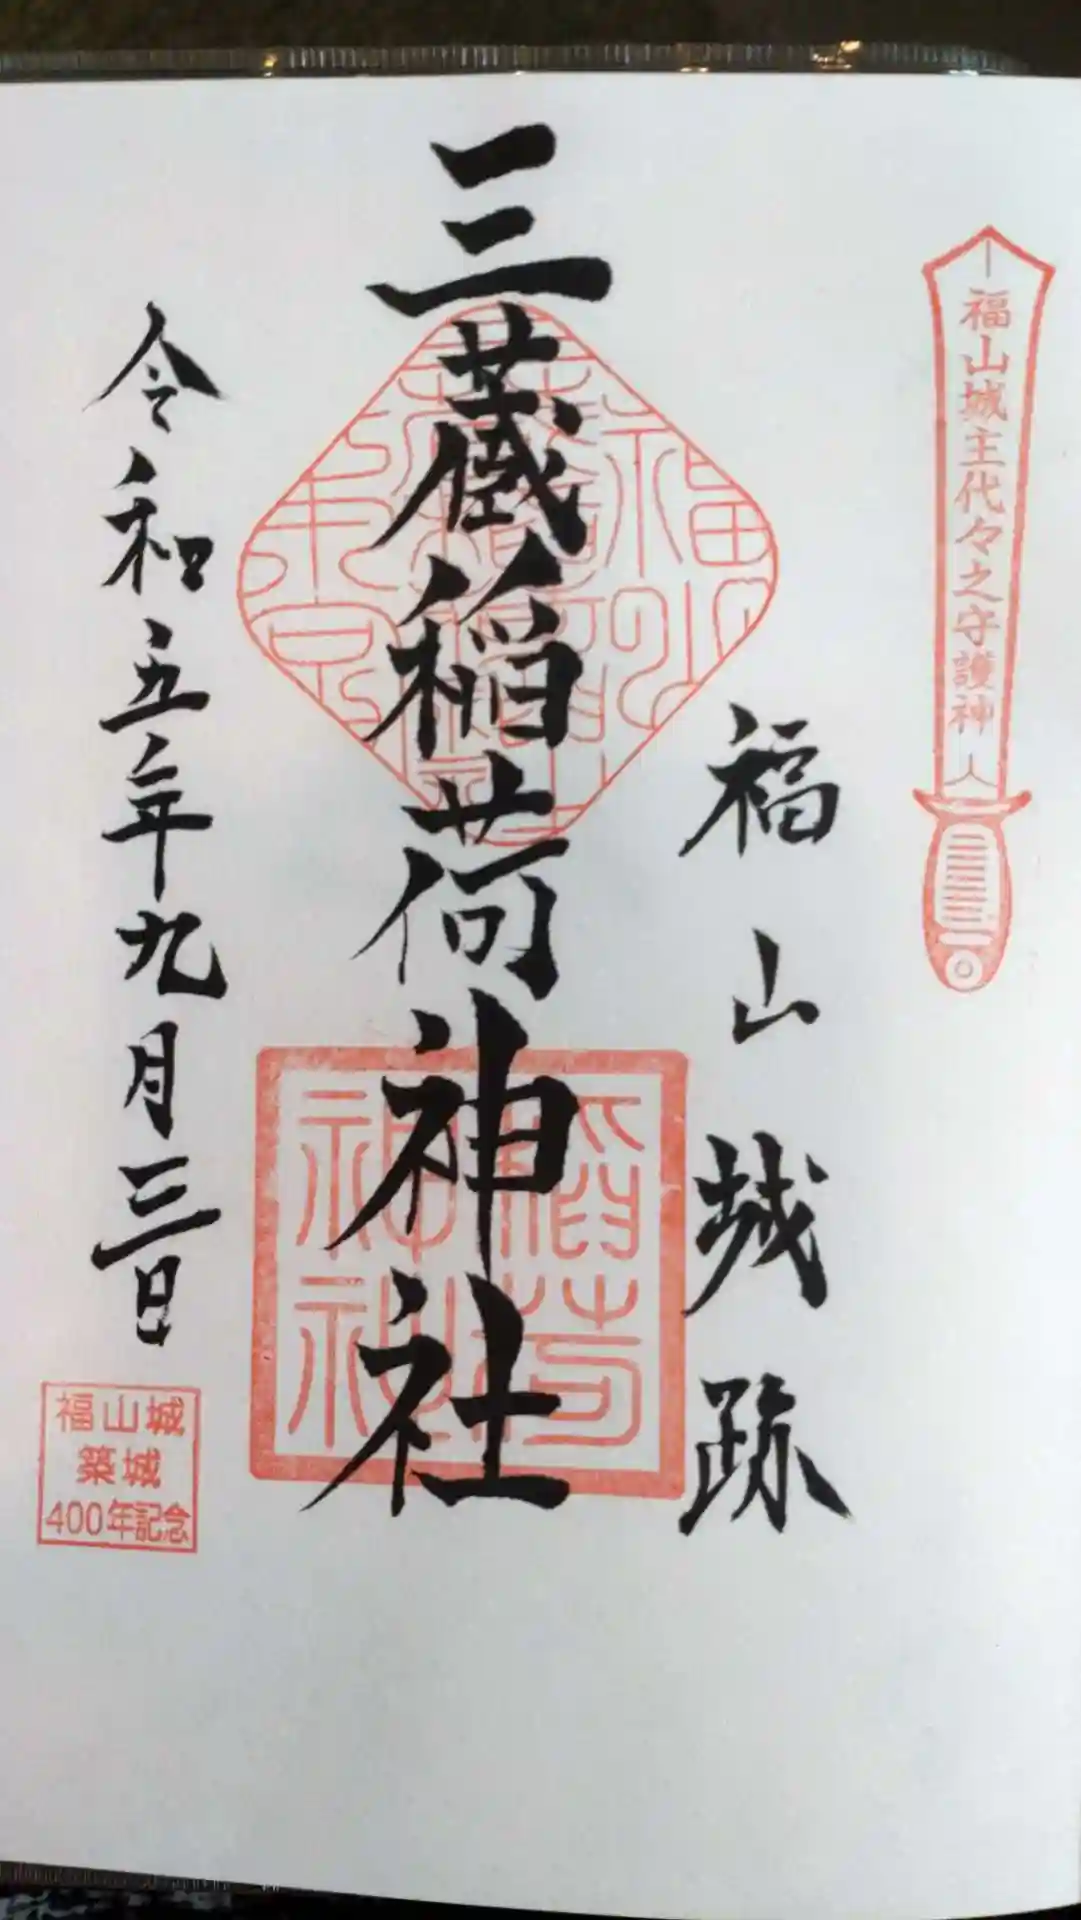 福山城主代々之守護神
福山城跡
三蔵稲荷神社
令和五年九月三日
稲荷
神社
福山城
築城
400年記念